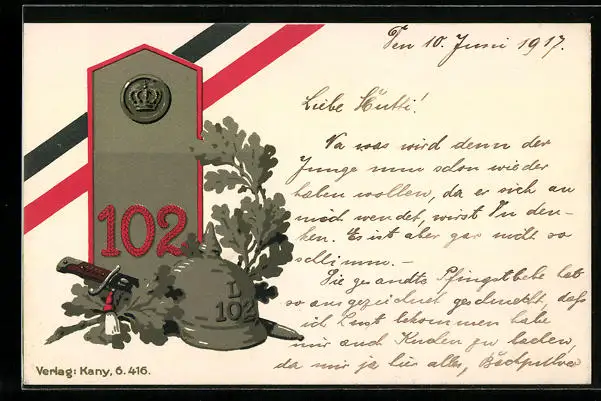 Den 10. Juni 1917.
Liebe Mutti!
Na was wird denn der
Junge nun schon wieder
haben wollen, da er sich an
mich wendet, wirst Du den-
ken. Es ist aber gar nicht so
schlimm. —
Die gesandte Pfingstbabe hat
so ausgezeichnet geschmeckt, daß
ich Lust bekommen habe
mir auch Kuchen zu backen,
da mir ja hier alles, Backpulver
102
L
102
Verlag: Kany, 6. 416.